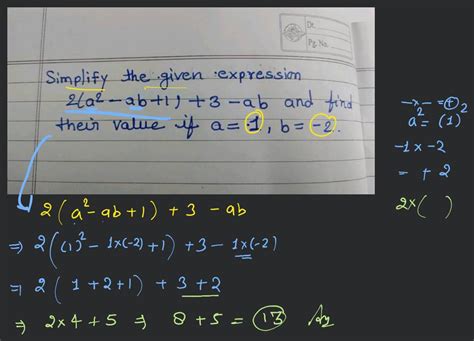 Dt.
Pg. No.
Simplify the given expression
2(a² - ab + 1) + 3 - ab and find
their value if a = 1, b = -2.
- × - = +
a² = (1)²
-1 × -2
= + 2
2 × ( )
2(a² - ab + 1) + 3 - ab
⇒ 2((1)² - 1×(-2) + 1) + 3 - 1×(-2)
⇒ 2(1 + 2 + 1) + 3 + 2
⇒ 2×4 + 5 ⇒ 8 + 5 = 13 Ans